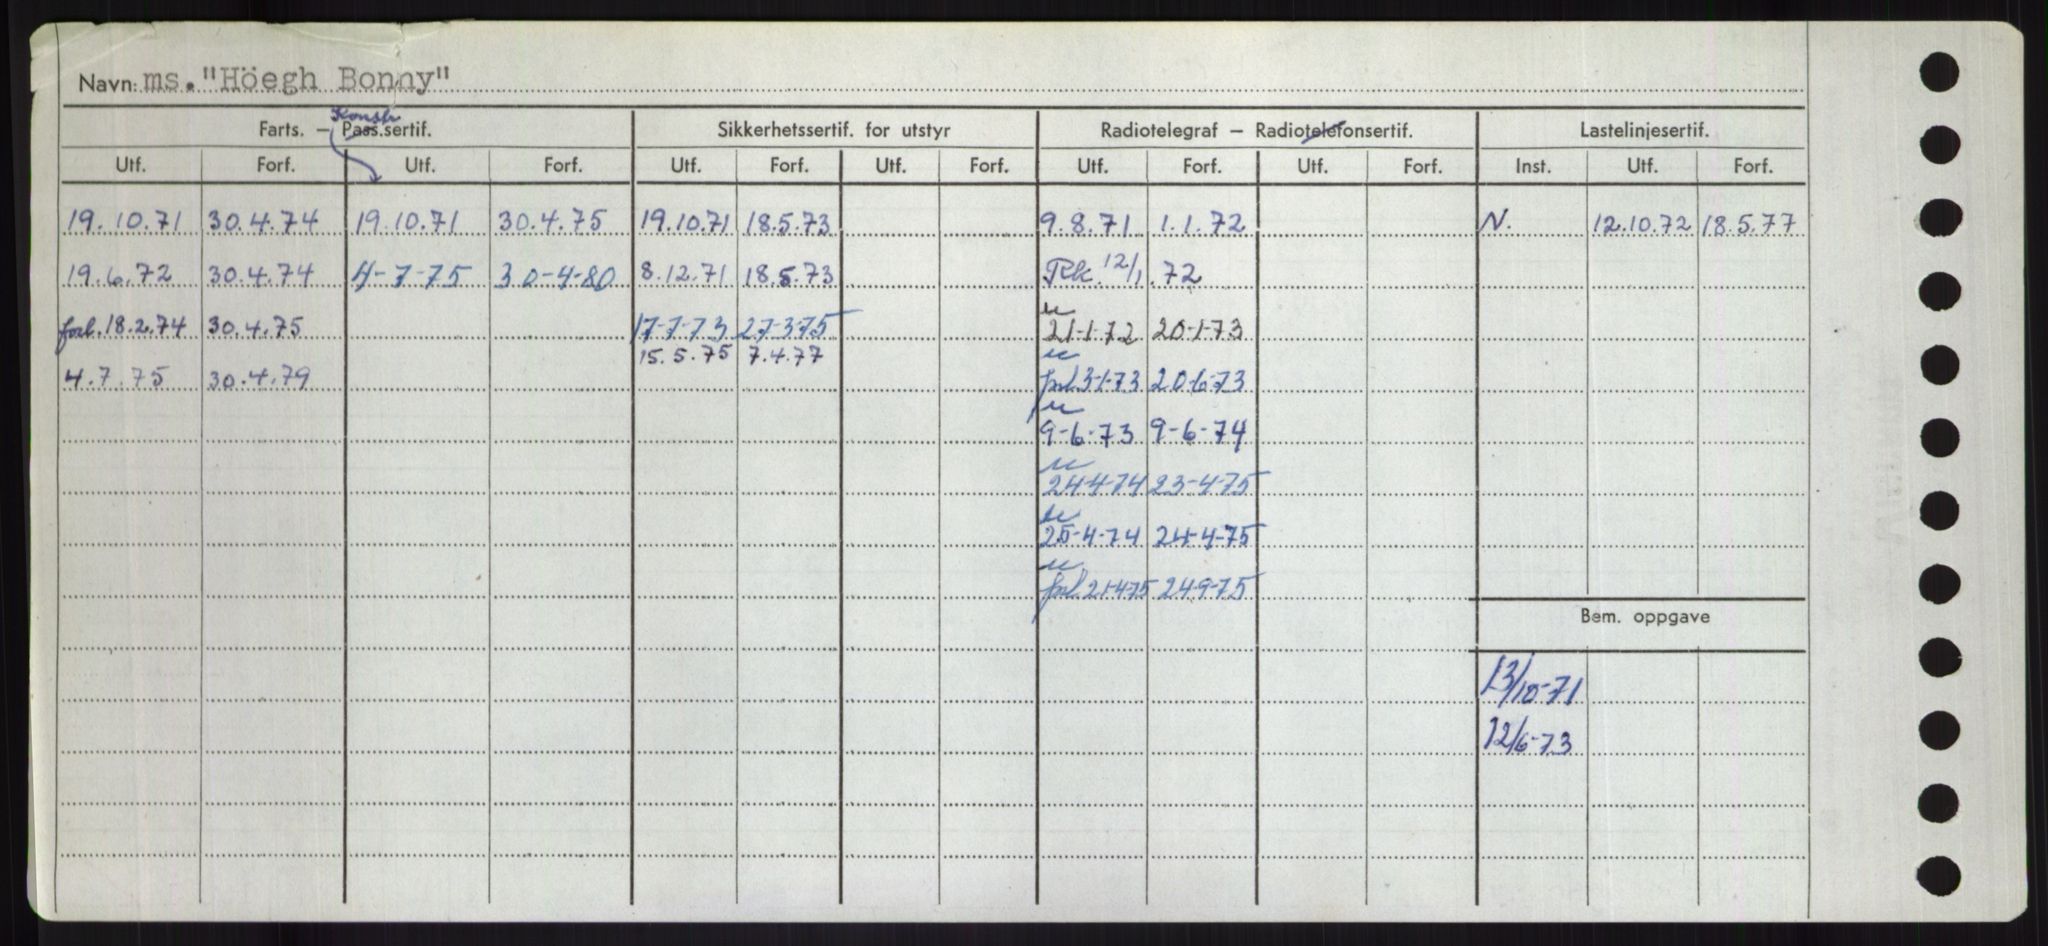 Navn: ms. "Höegh Bonny"
Konstr
Farts. — Pass.sertif. Sikkerhetssertif. for utstyr Radiotelegraf — Radiotelefonsertif. Lastelinjesertif.
Utf. Forf. Utf. Forf. Utf. Forf. Utf. Forf. Utf. Forf. Utf. Forf. Inst. Utf. Forf.
19.10.71 30.4.74 19.10.71 30.4.75 19.10.71 18.5.73 9.8.71 1.1.72 N. 12.10.72 18.5.77
19.6.72 30.4.74 4-7-75 30-4-80 8.12.71 18.5.73 Rk. 12/1.72
forl. 18.2.74 30.4.75 17-7-73 27-3-75 u 21-1-72 20-1-73
15.5.75 7.4.77
4.7.75 30.4.79 u forl. 3-1-73 20-6-73
u 9-6-73 9-6-74
u 24-4-74 23-4-75
u 25-4-74 24-4-75
u forl. 21-4-75 24-9-75
Bem. oppgave
13/10-71
12/6-73